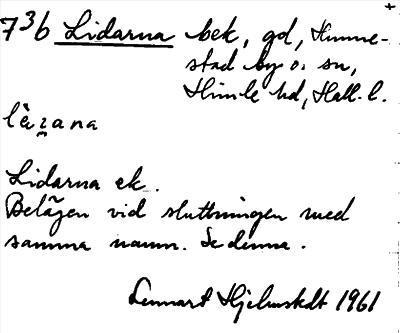 7³6 Lidarna bek, gd, Hunne-
stad by o. sn,
Himle hd, Hall. l.
Lidarna ek.
Belägen vid sluttningen med
samma namn. Se denna.
Lennart Hjelmstedt 1961